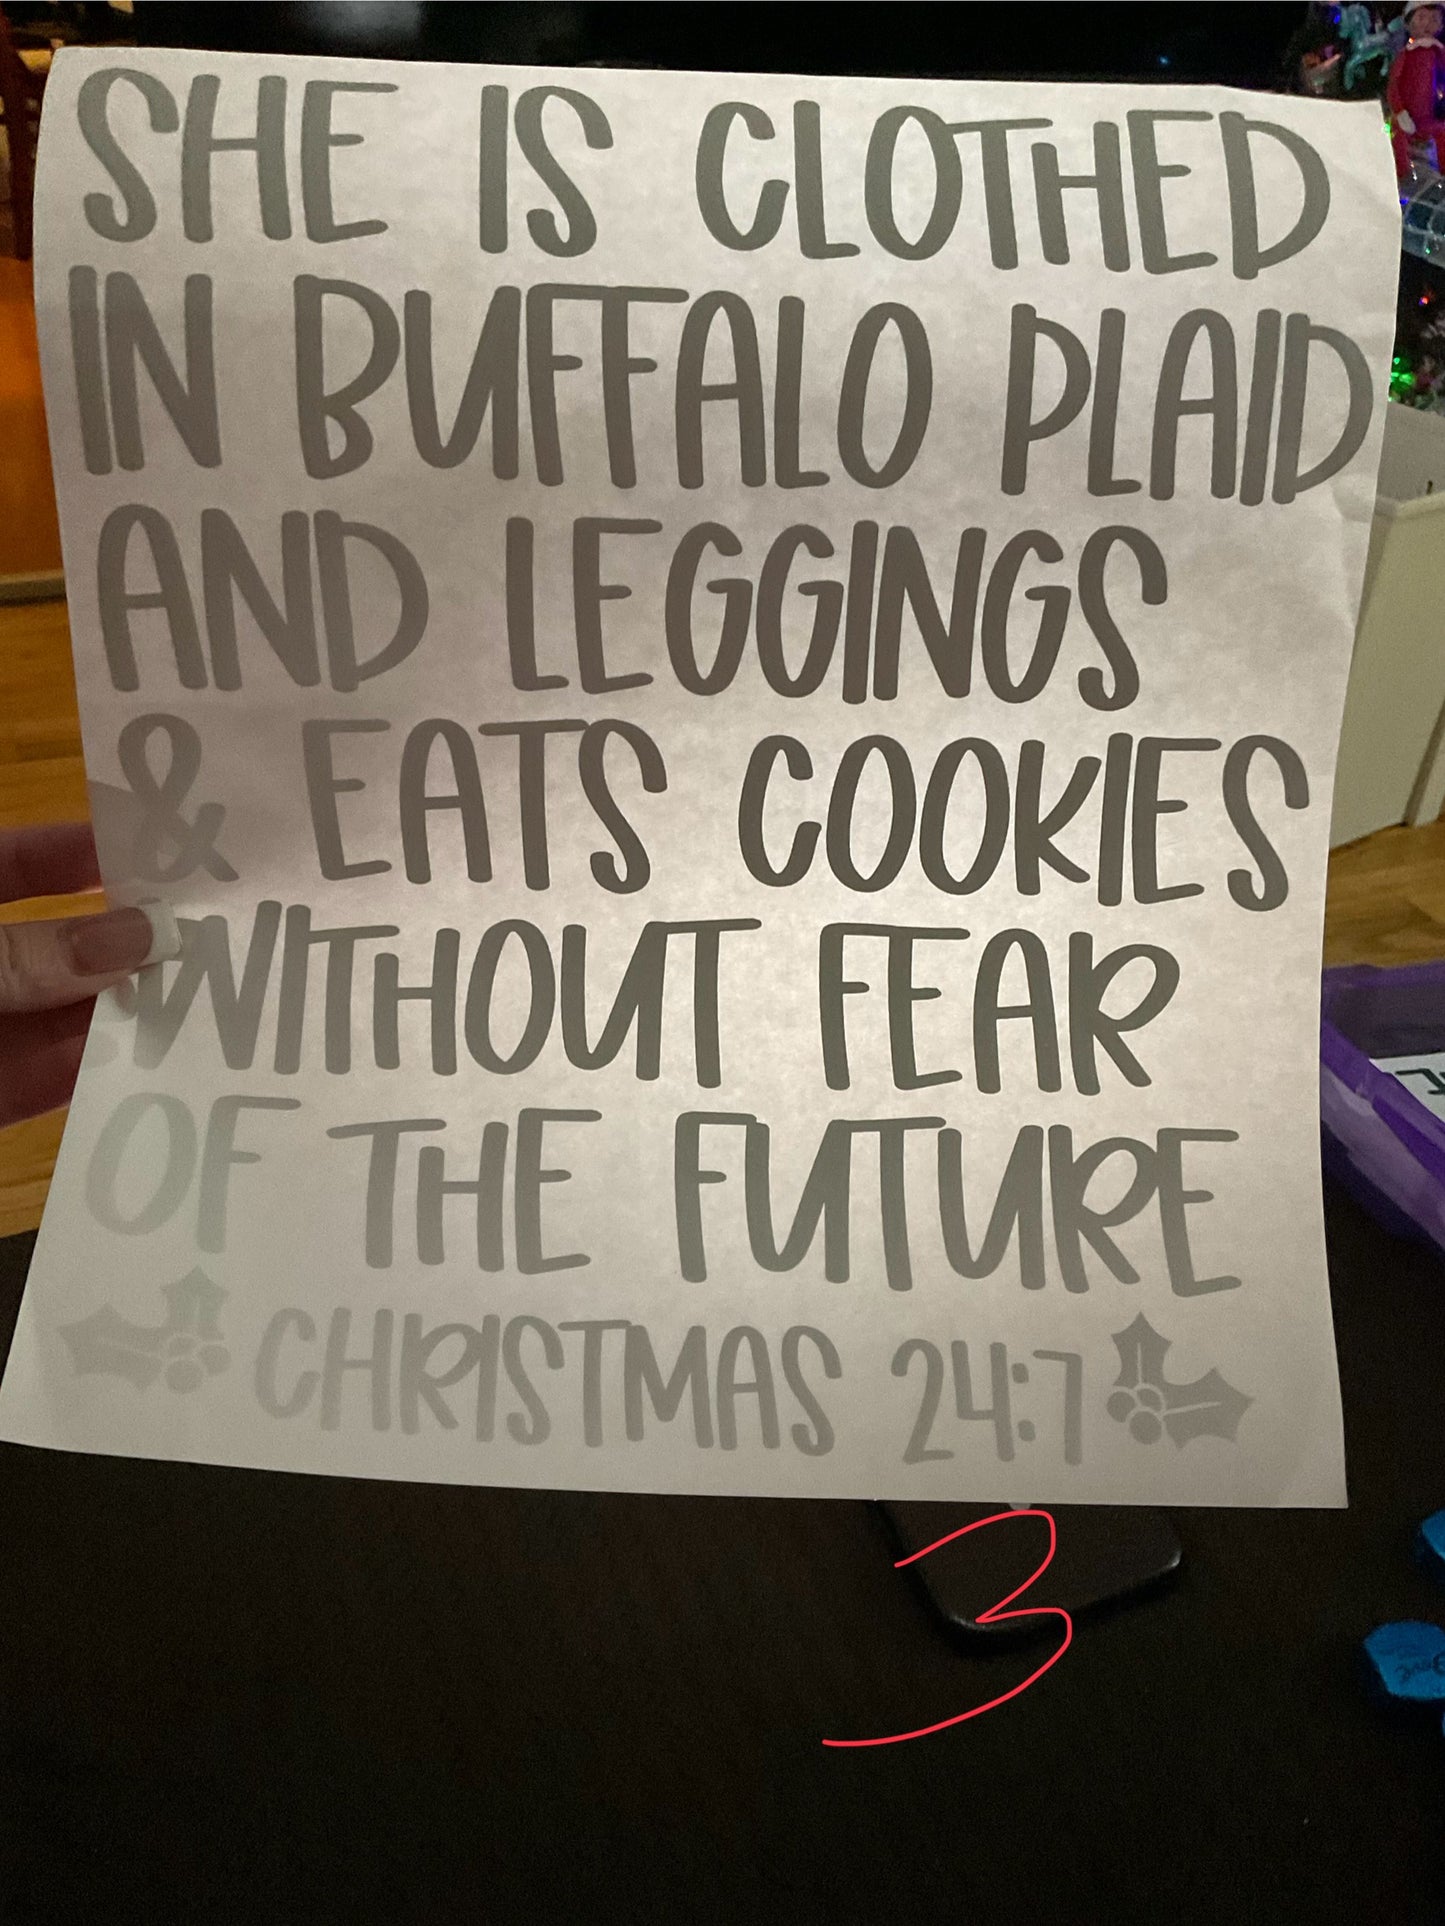 SHE IS CLOTHED
IN BUFFALO PLAID
AND LEGGINGS
& EATS COOKIES
WITHOUT FEAR
OF THE FUTURE
CHRISTMAS 24:7
3